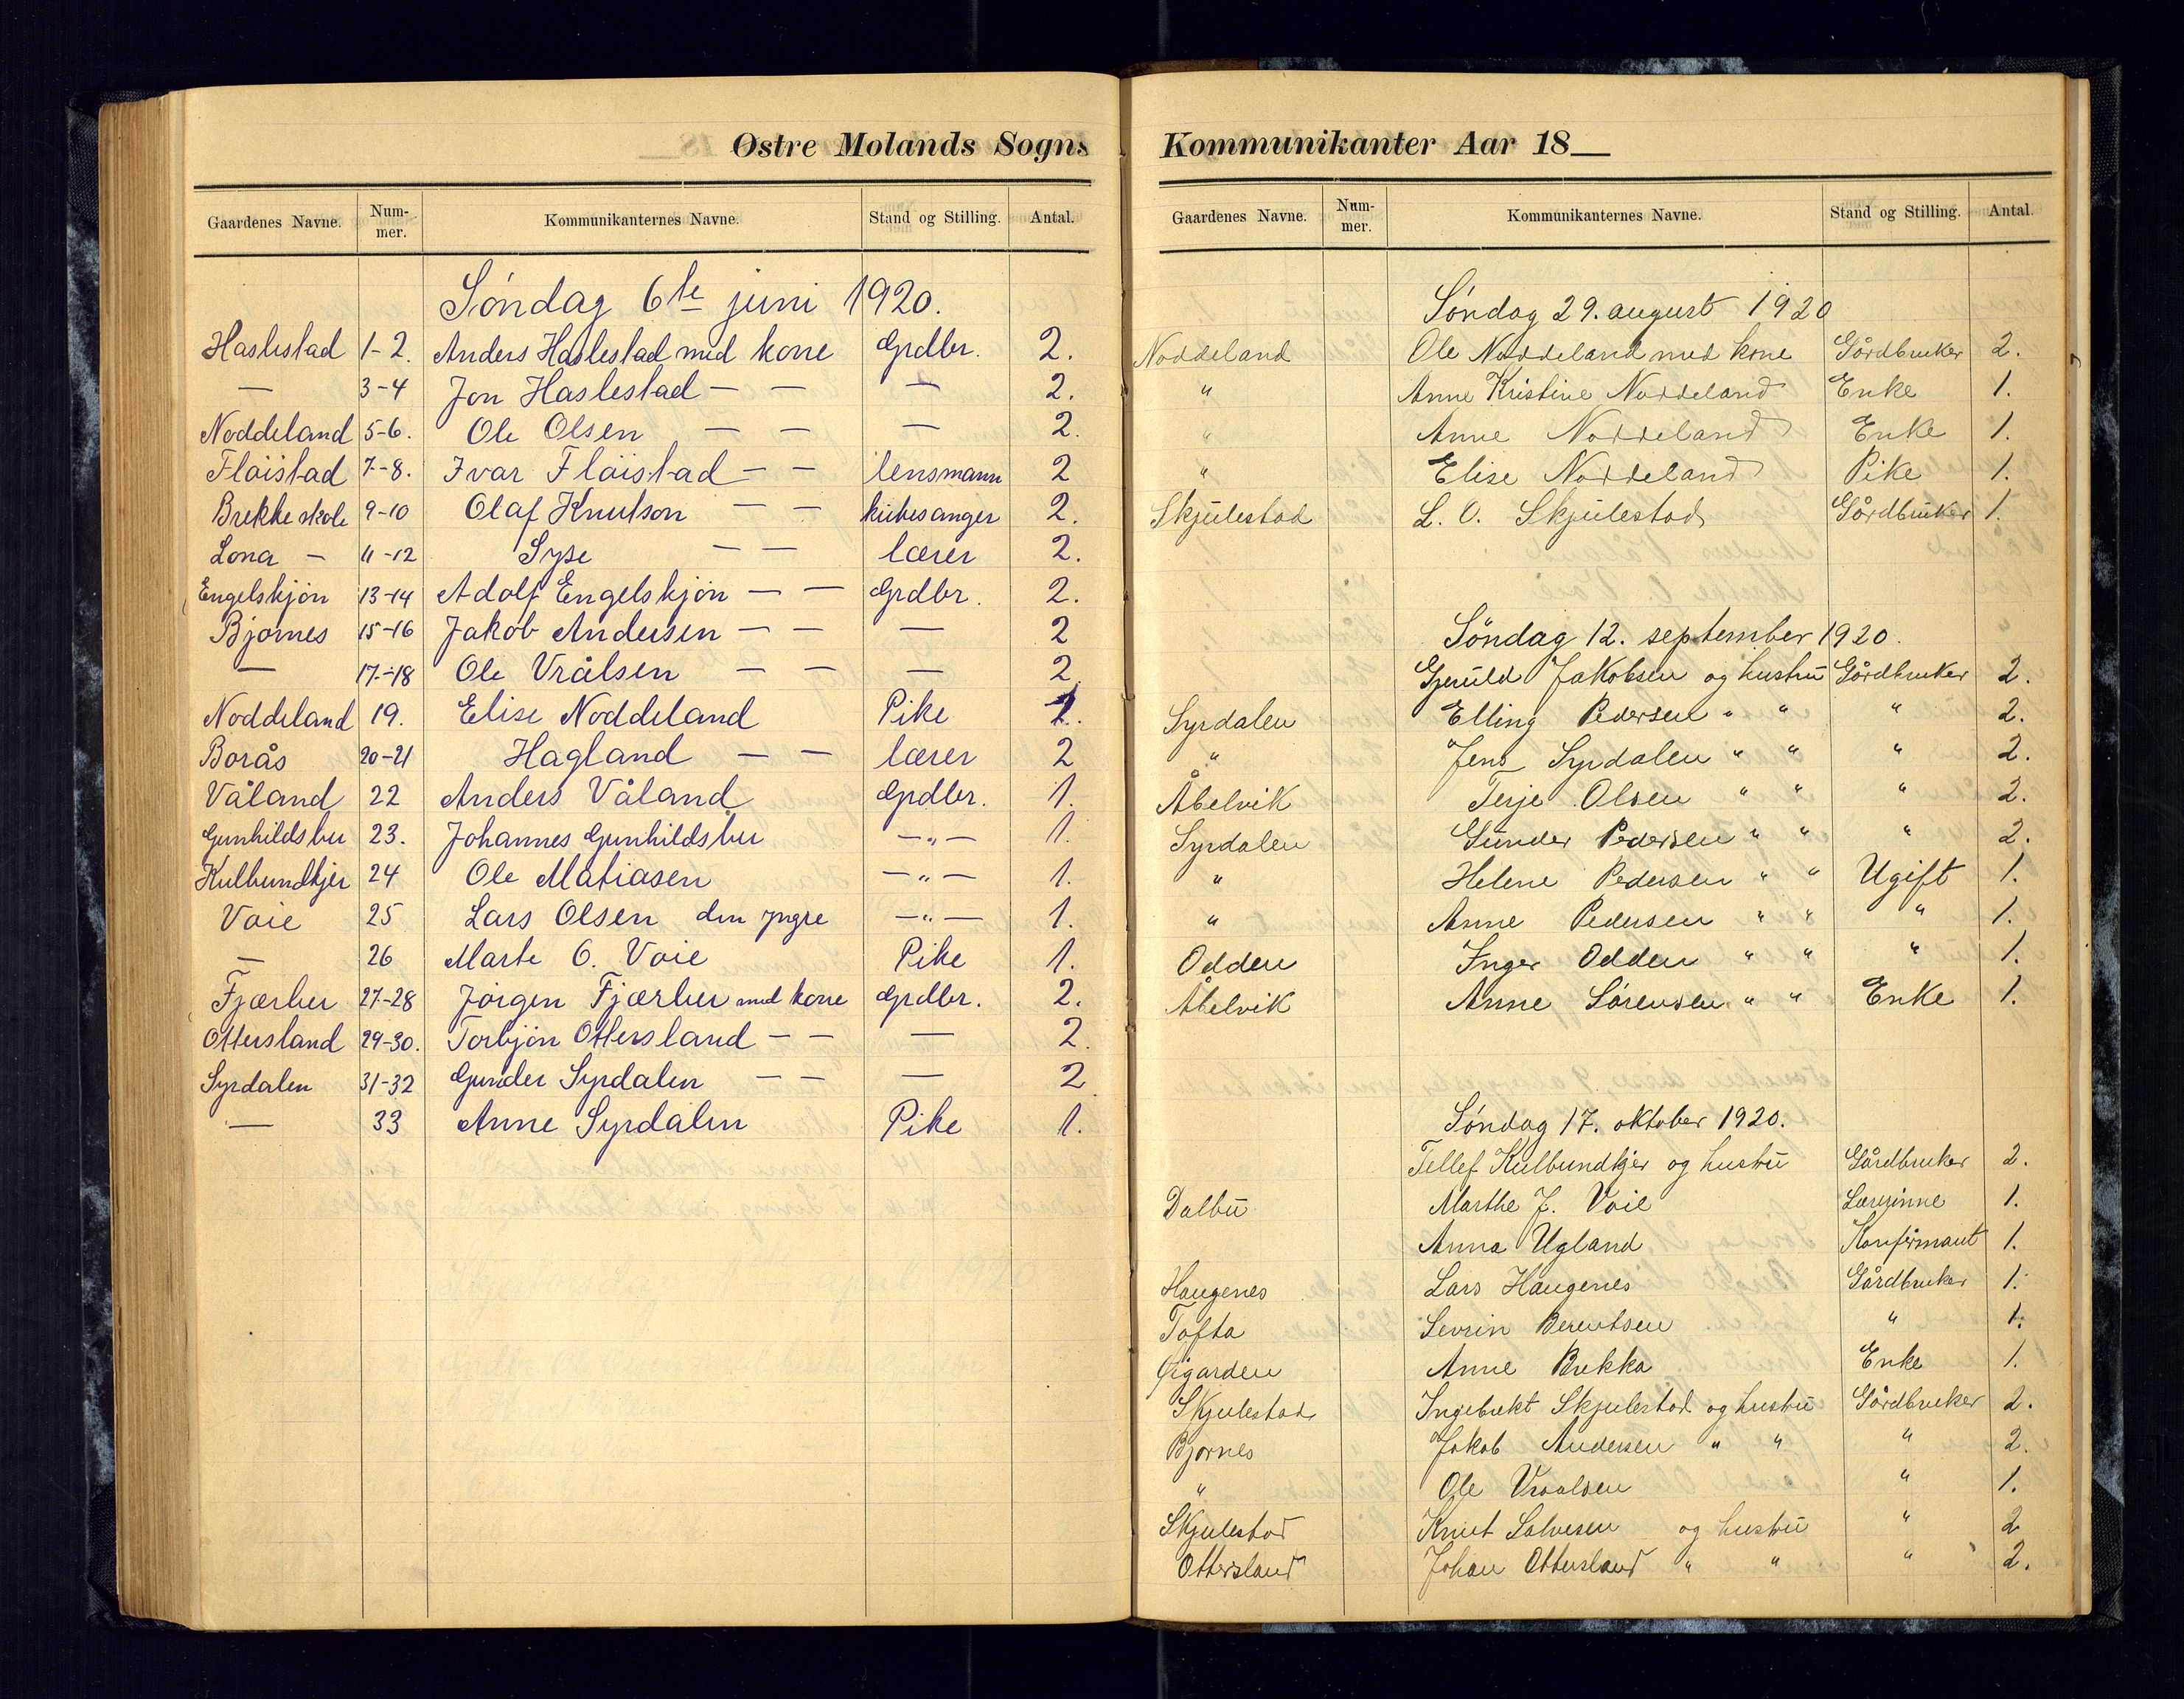 Østre Molands Sogns
Gaardenes Navne. Num-mer. Kommunikanternes Navne. Stand og Stilling. Antal.
Søndag 6te juni 1920.
Haslestad 1-2. Anders Haslestad med kone Grdbr. 2.
— 3-4 Jon Haslestad — — — 2.
Noddeland 5-6. Ole Olsen — — — 2.
Flöistad 7-8. Ivar Flöistad — — lensmann 2
Brekke skole 9-10 Olaf Knutson — — kirkesanger 2.
Lona — 11-12 Syse — — lærer 2.
Engelskjön 13-14 Adolf Engelskjön — — Grdbr. 2.
Bjornes 15-16 Jakob Andersen — — — 2
— 17-18 Ole Vrålsen — — — 2
Noddeland 19. Elise Noddeland Pike 1.
Borås 20-21 Hagland — — lærer 2
Våland 22 Anders Våland Grdbr. 1.
Gunhildsbu 23. Johannes Gunhildsbu —"— 1.
Kulbundkjer 24 Ole Matiasen —"— 1.
Voie 25 Lars Olsen den yngre —"— 1.
— 26 Marte O. Voie Pike 1.
Fjærbu 27-28 Jörgen Fjærbu med kone Grdbr. 2.
Ottersland 29-30. Torbjön Ottersland — — — 2.
Syrdalen 31-32 Gunder Syrdalen — — — 2
— 33 Anne Syrdalen Pike 1.
Kommunikanter Aar 18__
Gaardenes Navne. Num-mer. Kommunikanternes Navne. Stand og Stilling. Antal.
Søndag 29. august 1920
Noddeland Ole Noddeland med kone Gårdbruker 2.
" Anne Kristine Noddeland Enke 1.
" Anne Noddeland Enke 1.
" Elise Noddeland Pike 1.
Skjulestad L. O. Skjulestad Gårdbruker 1.
Søndag 12. september 1920.
Gjeruld Jakobsen og hustru Gårdbruker 2.
Syrdalen Elling Pedersen " " " 2.
" Jens Syrdalen " " " 2.
Åbelvik Terje Olsen " " " 2.
Syrdalen Gunder Pedersen " " " 2.
" Helene Pedersen " " Ugift 1.
" Anne Pedersen " " " 1.
Odden Inger Odden " " " 1.
Åbelvik Anne Sørensen " " Enke 1.
Søndag 17. oktober 1920.
Tellef Kulbundkjer og hustru Gårdbruker 2.
Dalbu Marthe J. Voie Lærerinne 1.
Anna Ugland Konfirmant 1.
Haugenes Lars Haugenes Gårdbruker 1.
Tofta Sevrin Berentsen " 1.
Øigarden Anne Brekka Enke 1.
Skjulestad Ingebrekt Skjulestad og hustru Gårdbruker 2.
Bjornes Jakob Andersen " " " 2.
" Ole Vraalsen " 1.
Skjulestad Knut Salvesen og hustru " 2
Ottersland Johan Ottersland " " " 2.